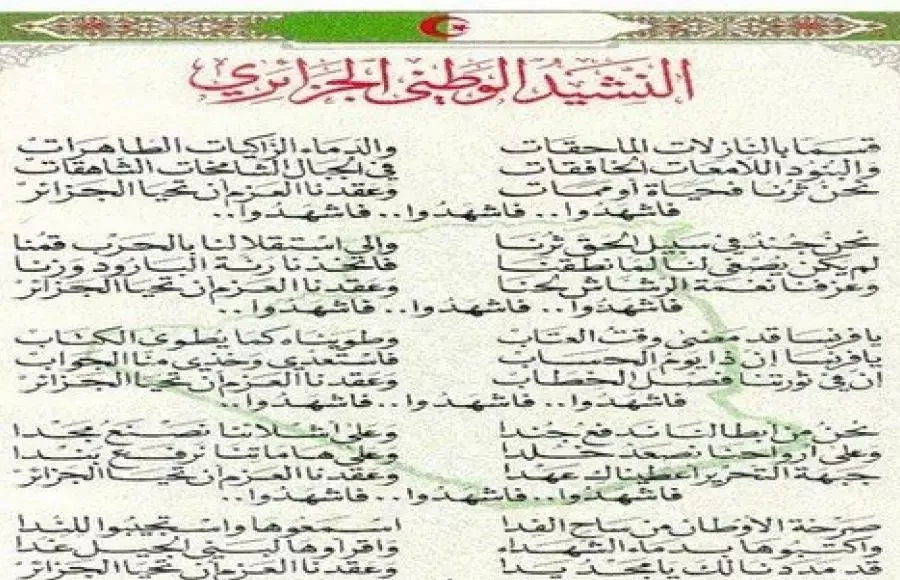 النشيد الوطني الجزائري
قسما بالنازلات الماحقات والدماء الزاكيات الطاهرات
والبنود اللامعات الخافقات في الجبال الشامخات الشاهقات
نحن ثرنا فحياة أو ممات وعقدنا العزم أن تحيا الجزائر
فاشهدوا.. فاشهدوا.. فاشهدوا..
نحن جند في سبيل الحق ثرنا وإلى استقلالنا بالحرب قمنا
لم يكن يصغى لنا لما نطقنا فاتخذنا رنة البارود وزنا
وعزفنا نغمة الرشاش لحنا وعقدنا العزم أن تحيا الجزائر
فاشهدوا.. فاشهدوا.. فاشهدوا..
يا فرنسا قد مضى وقت العتاب وطويناه كما يطوى الكتاب
يا فرنسا إن ذا يوم الحساب فاستعدي وخذي منا الجواب
ان في ثورتنا فصل الخطاب وعقدنا العزم أن تحيا الجزائر
فاشهدوا.. فاشهدوا.. فاشهدوا..
نحن من أبطالنا ندفع جندا وعلى أشلائنا نصنع مجدا
وعلى أرواحنا نصعد خلدا وعلى هاماتنا نرفع بندا
جبهة التحرير أعطيناك عهدا وعقدنا العزم أن تحيا الجزائر
فاشهدوا.. فاشهدوا.. فاشهدوا..
صرخة الأوطان من ساح الفدا اسمعوها واستجيبوا للندا
واكتبوها بدماء الشهداء واقرأوها لبني الجيل غدا
قد مددنا لك يا مجد يدا وعقدنا العزم أن تحيا الجزائر